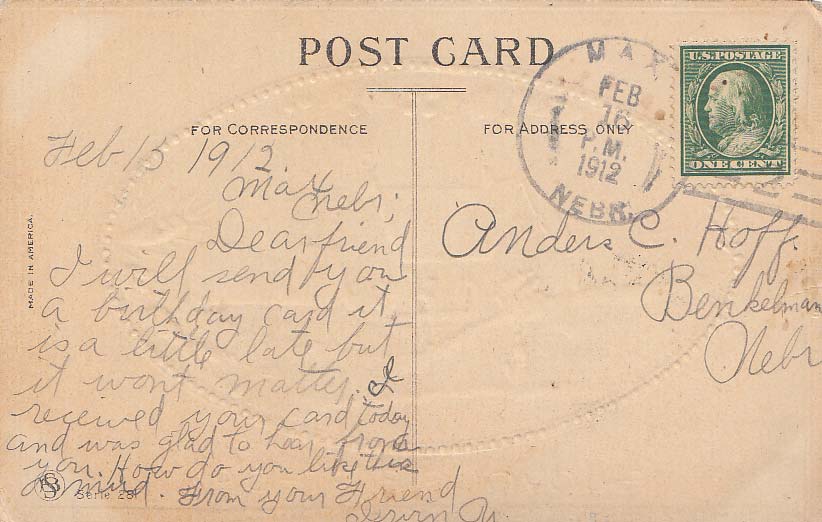 POST CARD
MAX
FEB
16
P.M.
1912
NEBR.
U.S. POSTAGE
ONE CENT
FOR CORRESPONDENCE
FOR ADDRESS ONLY
MADE IN AMERICA.
Feb 15 1912
Max
Nebr;
Dear friend
I will send you
a birthday card it
is a little late but
it wont matter. I
received your card today
and was glad to hear from
you. How do you like this
From your Friend
Serie 281
Anders C. Hoff.
Benkelman
Nebr